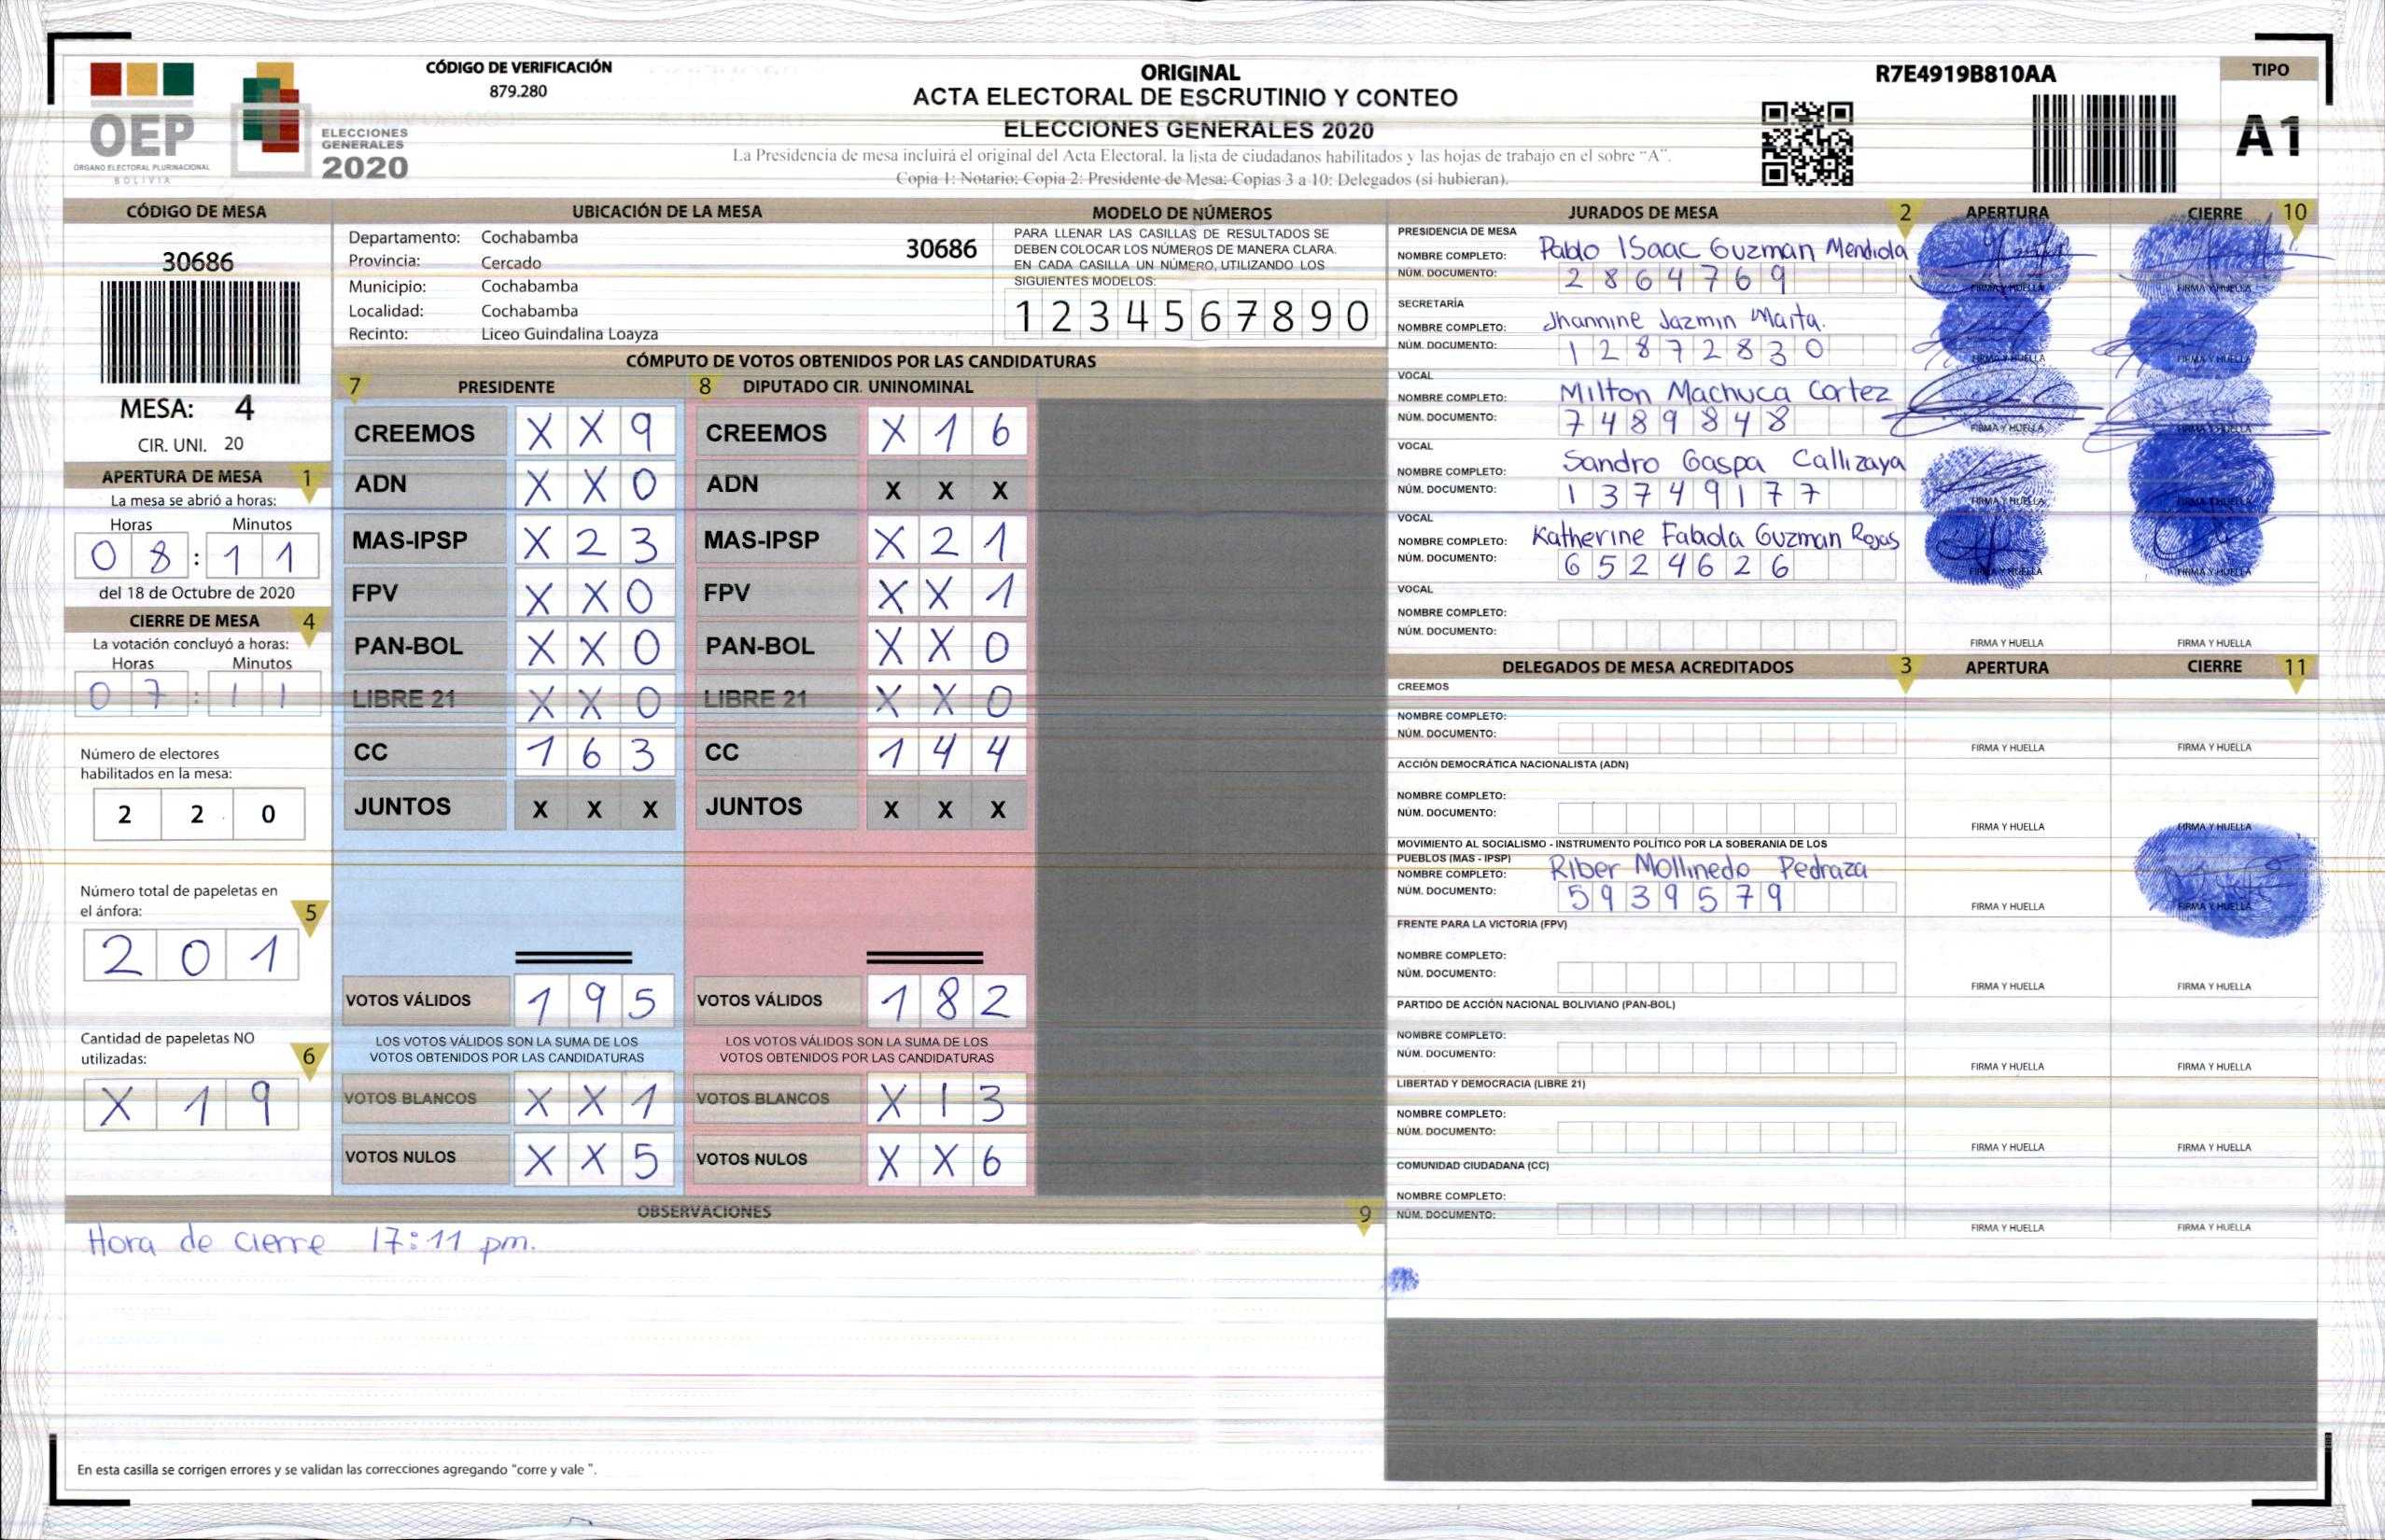 OEP
ÓRGANO ELECTORAL PLURINACIONAL
BOLIVIA
ELECCIONES
GENERALES
2020
CÓDIGO DE VERIFICACIÓN
879.280
ORIGINAL
ACTA ELECTORAL DE ESCRUTINIO Y CONTEO
ELECCIONES GENERALES 2020
La Presidencia de mesa incluirá el original del Acta Electoral, la lista de ciudadanos habilitados y las hojas de trabajo en el sobre "A".
Copia 1: Notario; Copia 2: Presidente de Mesa; Copias 3 a 10: Delegados (si hubieran).
R7E4919B810AA
TIPO
A1
CÓDIGO DE MESA
30686
MESA: 4
CIR. UNI. 20
APERTURA DE MESA 1
La mesa se abrió a horas:
Horas Minutos
08:11
del 18 de Octubre de 2020
CIERRE DE MESA 4
La votación concluyó a horas:
Horas Minutos
07:11
Número de electores
habilitados en la mesa:
2 2 0
Número total de papeletas en
el ánfora: 5
2 0 1
Cantidad de papeletas NO
utilizadas: 6
X 1 9
UBICACIÓN DE LA MESA
Departamento: Cochabamba
30686
Provincia: Cercado
Municipio: Cochabamba
Localidad: Cochabamba
Recinto: Liceo Guindalina Loayza
MODELO DE NÚMEROS
PARA LLENAR LAS CASILLAS DE RESULTADOS SE
DEBEN COLOCAR LOS NÚMEROS DE MANERA CLARA.
EN CADA CASILLA UN NÚMERO, UTILIZANDO LOS
SIGUIENTES MODELOS:
1 2 3 4 5 6 7 8 9 0
CÓMPUTO DE VOTOS OBTENIDOS POR LAS CANDIDATURAS
7 PRESIDENTE 8 DIPUTADO CIR. UNINOMINAL
CREEMOS X X 9 CREEMOS X 1 6
ADN X X 0 ADN X X X
MAS-IPSP X 2 3 MAS-IPSP X 2 1
FPV X X 0 FPV X X 1
PAN-BOL X X 0 PAN-BOL X X 0
LIBRE 21 X X 0 LIBRE 21 X X 0
CC 1 6 3 CC 1 4 4
JUNTOS X X X JUNTOS X X X
VOTOS VÁLIDOS 1 9 5 VOTOS VÁLIDOS 1 8 2
LOS VOTOS VÁLIDOS SON LA SUMA DE LOS LOS VOTOS VÁLIDOS SON LA SUMA DE LOS
VOTOS OBTENIDOS POR LAS CANDIDATURAS VOTOS OBTENIDOS POR LAS CANDIDATURAS
VOTOS BLANCOS X X 1 VOTOS BLANCOS X 1 3
VOTOS NULOS X X 5 VOTOS NULOS X X 6
OBSERVACIONES 9
Hora de cierre 17:11 pm.
En esta casilla se corrigen errores y se validan las correcciones agregando "corre y vale ".
JURADOS DE MESA 2 APERTURA CIERRE 10
PRESIDENCIA DE MESA
NOMBRE COMPLETO: Pablo ISaac Guzman Mendiola
NÚM. DOCUMENTO: 2864769
FIRMA Y HUELLA FIRMA Y HUELLA
SECRETARÍA
NOMBRE COMPLETO: Jhannine Jazmin Marta.
NÚM. DOCUMENTO: 12872830
FIRMA Y HUELLA FIRMA Y HUELLA
VOCAL
NOMBRE COMPLETO: Milton Machuca Cortez
NÚM. DOCUMENTO: 7489848
FIRMA Y HUELLA FIRMA Y HUELLA
VOCAL
NOMBRE COMPLETO: Sandro Gaspa Callizaya
NÚM. DOCUMENTO: 13749177
FIRMA Y HUELLA FIRMA Y HUELLA
VOCAL
NOMBRE COMPLETO: Katherine Fabola Guzman Rojas
NÚM. DOCUMENTO: 6524626
FIRMA Y HUELLA FIRMA Y HUELLA
VOCAL
NOMBRE COMPLETO:
NÚM. DOCUMENTO:
FIRMA Y HUELLA FIRMA Y HUELLA
DELEGADOS DE MESA ACREDITADOS 3 APERTURA CIERRE 11
CREEMOS
NOMBRE COMPLETO:
NÚM. DOCUMENTO:
FIRMA Y HUELLA FIRMA Y HUELLA
ACCIÓN DEMOCRÁTICA NACIONALISTA (ADN)
NOMBRE COMPLETO:
NÚM. DOCUMENTO:
FIRMA Y HUELLA FIRMA Y HUELLA
MOVIMIENTO AL SOCIALISMO - INSTRUMENTO POLÍTICO POR LA SOBERANIA DE LOS
PUEBLOS (MAS - IPSP)
NOMBRE COMPLETO: Riber Mollinedo Pedraza
NÚM. DOCUMENTO: 5939579
FIRMA Y HUELLA FIRMA Y HUELLA
FRENTE PARA LA VICTORIA (FPV)
NOMBRE COMPLETO:
NÚM. DOCUMENTO:
FIRMA Y HUELLA FIRMA Y HUELLA
PARTIDO DE ACCIÓN NACIONAL BOLIVIANO (PAN-BOL)
NOMBRE COMPLETO:
NÚM. DOCUMENTO:
FIRMA Y HUELLA FIRMA Y HUELLA
LIBERTAD Y DEMOCRACIA (LIBRE 21)
NOMBRE COMPLETO:
NÚM. DOCUMENTO:
FIRMA Y HUELLA FIRMA Y HUELLA
COMUNIDAD CIUDADANA (CC)
NOMBRE COMPLETO:
NÚM. DOCUMENTO:
FIRMA Y HUELLA FIRMA Y HUELLA